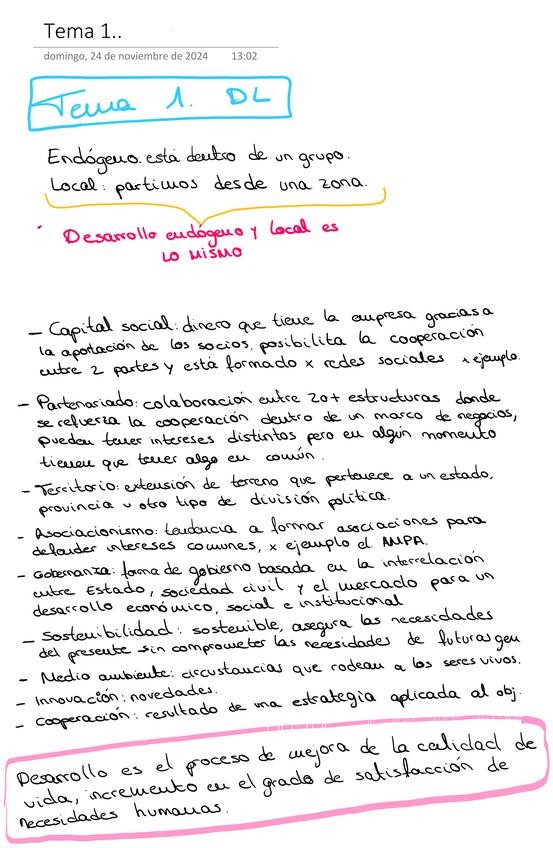 Tema 1..
domingo, 24 de noviembre de 2024 13:02
Tema 1. DL
Endógeno: está dentro de un grupo.
Local: partimos desde una zona.
Desarrollo endógeno y local es
LO MISMO
- Capital social: dinero que tiene la empresa gracias a
la aportación de los socios, posibilita la cooperación
entre 2 partes y está formado x redes sociales x ejemplo.
- Partenariado: colaboración entre 2 o + estructuras donde
se refuerza la cooperación dentro de un marco de negocios,
pueden tener intereses distintos pero en algún momento
tienen que tener algo en común.
- Territorio: extensión de terreno que pertenece a un estado,
provincia u otro tipo de división política.
- Asociacionismo: tendencia a formar asociaciones para
defender intereses comunes, x ejemplo el AMPA.
- Gobernanza: forma de gobierno basada en la interrelación
entre Estado, sociedad civil y el mercado para un
desarrollo económico, social e institucional
- Sostenibilidad: sostenible, asegura las necesidades
del presente sin comprometer las necesidades de futuras gen
- Medio ambiente: circustancias que rodean a los seres vivos.
- Innovación: novedades.
- Cooperación: resultado de una estrategia aplicada al obj.
Desarrollo es el proceso de mejora de la calidad de
vida, incremento en el grado de satisfacción de
necesidades humanas.